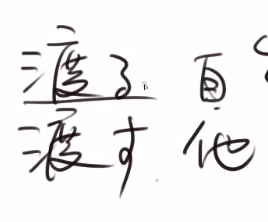 渡る 自
渡す 他